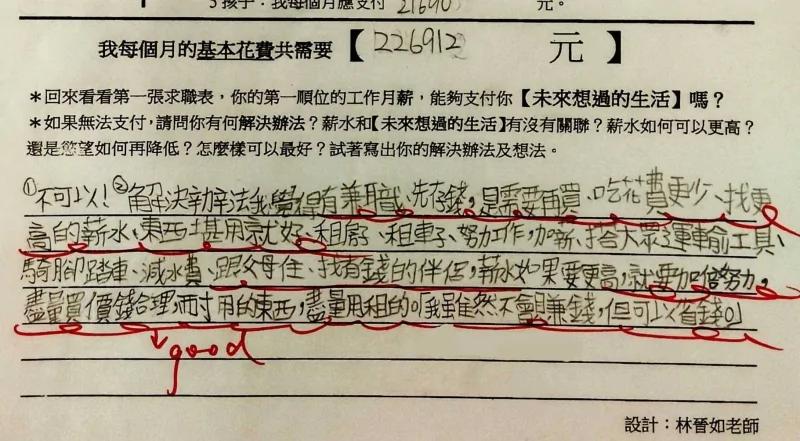 5 孩子：我每個月應支付 21690 元。
我每個月的基本花費共需要【226912 元】
＊回來看看第一張求職表，你的第一順位的工作月薪，能夠支付你【未來想過的生活】嗎？
＊如果無法支付，請問你有何解決辦法？薪水和【未來想過的生活】有沒有關聯？薪水如何可以更高？
還是慾望如何再降低？怎麼樣可以最好？試著寫出你的解決辦法及想法。
①不可以！②解決辦法我覺得有兼職、先存錢，是需要再買、吃花費更少、找更
高的薪水、東西堪用就好、租房、租車子、努力工作，加薪、搭大眾運輸工具、
騎腳踏車、減水費、跟父母住、找有錢的伴侶，薪水如果要更高，就要加倍努力，
盡量買價錢合理，耐用的東西，盡量用租的。「我雖然不會賺錢，但可以省錢」
good
設計：林晉如老師